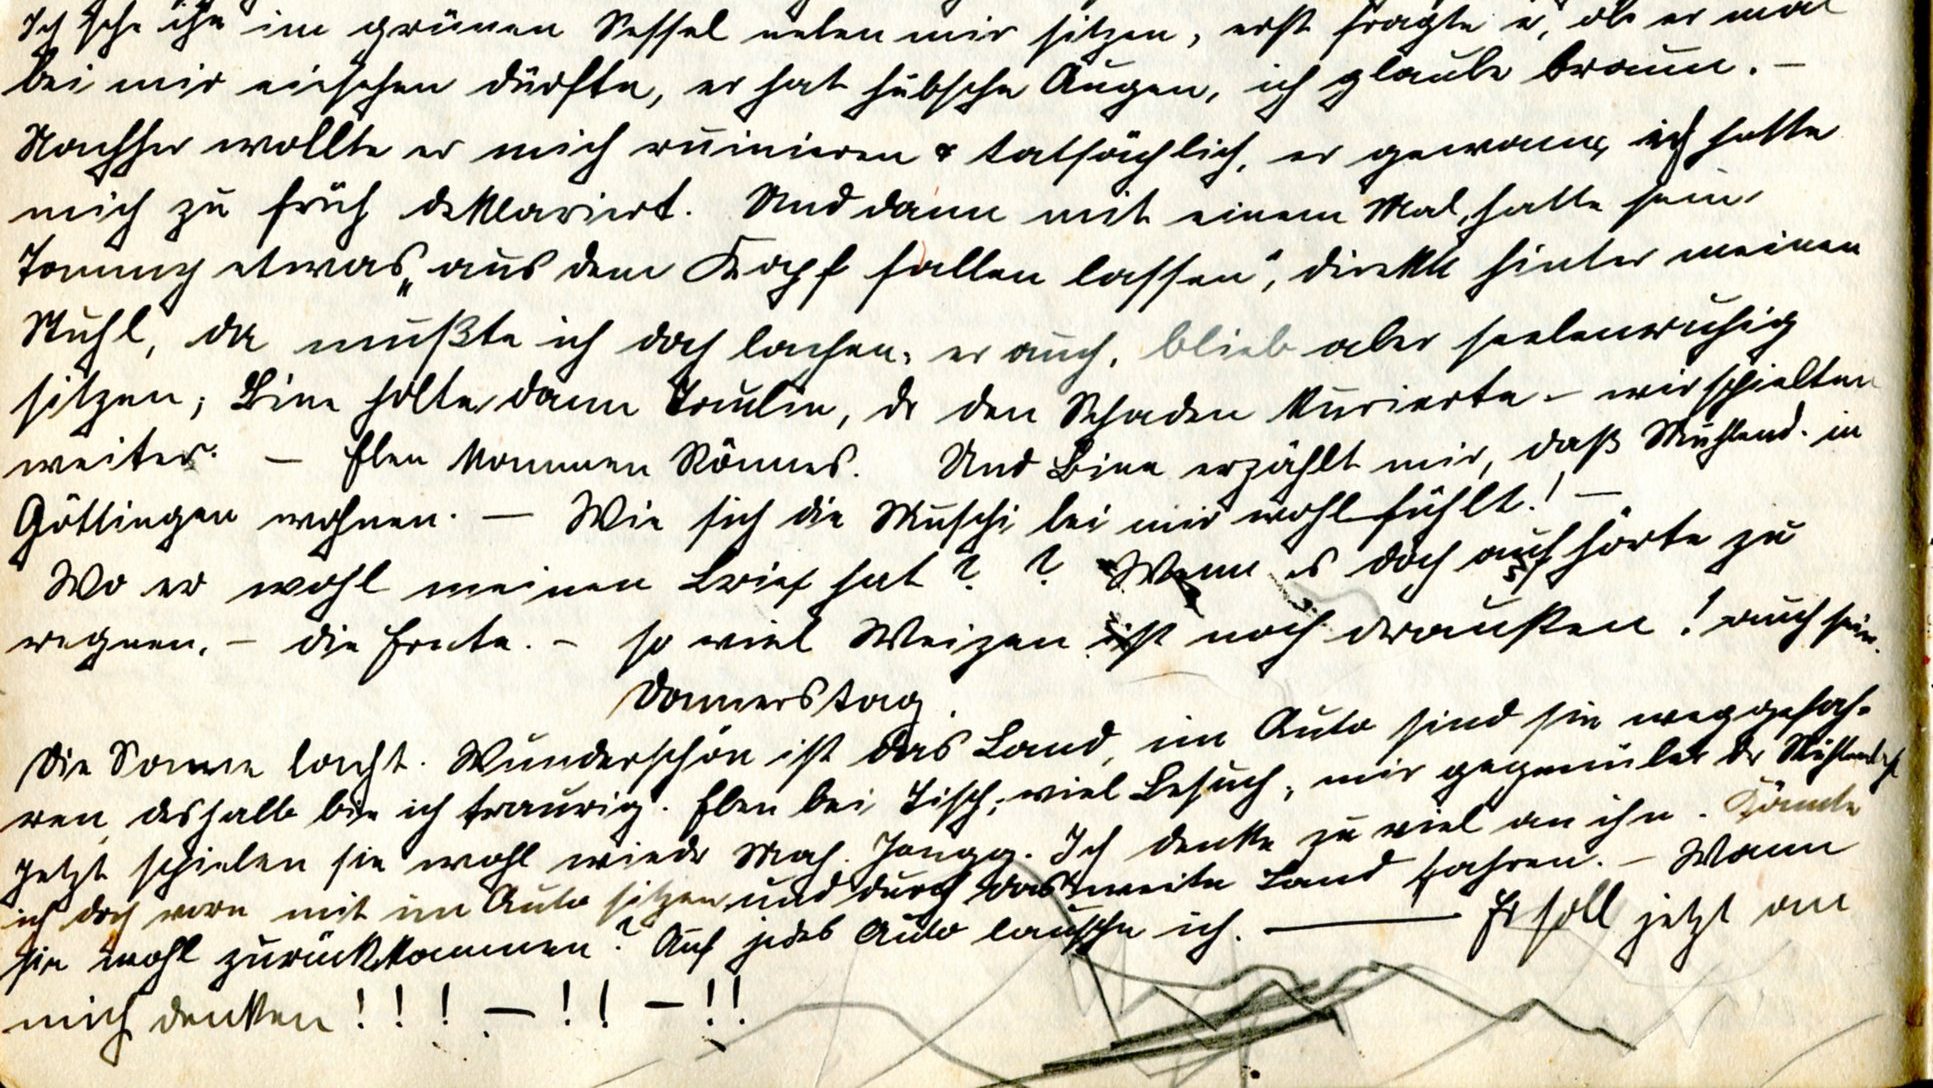 Ich sehe ihn im grünen Sessel neben mir sitzen, erst fragte er, ob er mal
bei mir einsehen dürfte, er hat hübsche Augen, ich glaube braun. –
Nachher wollte er mich ruinieren & tatsächlich, er gewann, ich hatte
mich zu früh deklariert. Und dann mit einem Mal, hatte sein
Tommy etwas „aus dem Kopf fallen lassen“, direkt hinter meinen
Stuhl, da mußte ich doch lachen, er auch, blieb aber seelenruhig
sitzen; Bine holte dann, der den Schaden kurierte – wir spielten
weiter. – Eben kommen Rönnes. Und Bine erzählt mir, daß Mühlend. in
Göttingen wohnen. – Wie sich die Muschi bei mir wohl fühlt! –
Wo er wohl meinen Brief hat? ? Wenn es doch aufhörte zu
regnen, – die Ernte. – so viel Weizen ist noch draußen! auch sein.
Donnerstag.
Die Sonne lacht. Wunderschön ist das Land, im Auto sind sie weggefah-
ren, deshalb bin ich traurig. Eben bei Tisch, viel Besuch, mir gegenüber der
Jetzt spielen sie wohl wieder Mah. Jongg. Ich denke zu viel an ihn. Könnte
ich doch vorn mit im Auto sitzen und durch das weite Land fahren. – Wann
sie wohl zurückkommen? Auf jedes Auto lausche ich. — Er soll jetzt an
mich denken!!! – !! – !!